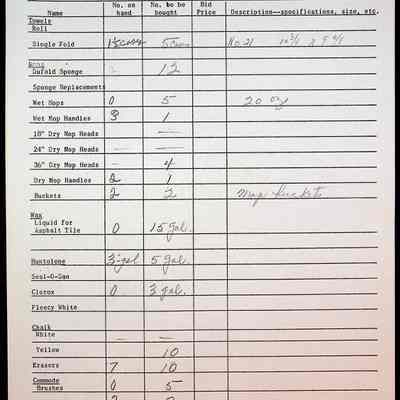 No. on No. to be Bid
Name hand bought Price Description--specifications, size, etc.
Towels
Roll
Single Fold 15 cases 5 cases No. 21
Mops
Dufold Sponge 12
Sponge Replacements
Wet Mops 0 5 20 oz
Wet Mop Handles 3 1
18" Dry Mop Heads —
24" Dry Mop Heads — —
36" Dry Mop Heads — 4
Dry Mop Handles 2 1
Buckets 2 2 Mop Buckets
Wax
Liquid for
Asphalt Tile 0 15 gal.
Huntolene 3 gal 5 gal.
Seal-O-San
Clorox 0 3 gal.
Fleecy White
Chalk
White — —
Yellow 10
Erasers 7 10
Commode
Brushes 0 5